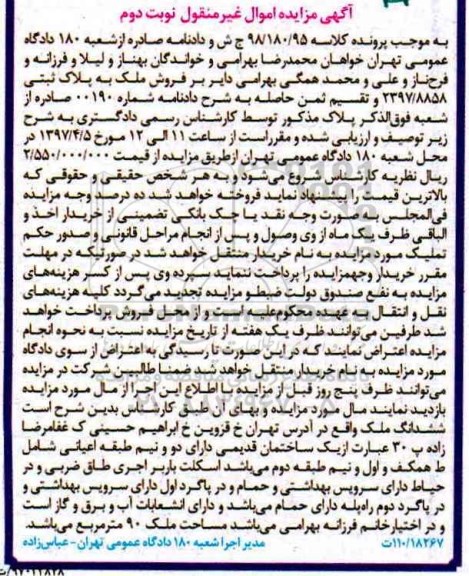 آگهی مزایده اموال غیرمنقول نوبت دوم
به موجب پرونده کلاسه ۹۸/۱۸۰/۹۵ ج ش و دادنامه صادره ازشعبه ۱۸۰ دادگاه
عمومی تهران خواهان محمدرضا بهرامی و خواندگان بهناز و لیلا و فرزانه و
فرح‌ناز و علی و محمد همگی بهرامی دایر بر فروش ملک به پلاک ثبتی
۲۳۹۷/۸۸۵۸ و تقسیم ثمن حاصله به شرح دادنامه شماره ۰۰۱۹۰ صادره از
شعبه فوق‌الذکر پلاک مذکور توسط کارشناس رسمی دادگستری به شرح
زیر توصیف و ارزیابی شده و مقرر است از ساعت ۱۱ الی ۱۲ مورخ ۱۳۹۷/۴/۵ در
محل شعبه ۱۸۰ دادگاه عمومی تهران ازطریق مزایده از قیمت ۲/۵۵۰/۰۰۰/۰۰۰
ریال نظریه کارشناسی شروع می‌شود و به هر شخص حقیقی و حقوقی که
بالاترین قیمت را پیشنهاد نماید فروخته خواهد شد ده درصد وجه مزایده
فی‌المجلس به صورت وجه نقد یا چک بانکی تضمینی از خریدار اخذ و
الباقی ظرف یک ماه از وی وصول و پس از انجام مراحل قانونی و صدور حکم
تملیک مورد مزایده به نام خریدار منتقل خواهد شد در صورتیکه در مهلت
مقرر خریدار وجه‌مزایده را پرداخت ننماید سپرده وی پس از کسر هزینه‌های
مزایده به نفع صندوق دولت ضبط‌و مزایده تجدید می‌گردد کلیه هزینه‌های
نقل و انتقال به عهده محکوم‌علیه است و از محل فروش پرداخت خواهد
شد طرفین می‌توانند ظرف یک هفته از تاریخ مزایده نسبت به نحوه انجام
مزایده اعتراض نمایند که در این صورت تا رسیدگی به اعتراض از سوی دادگاه
مورد مزایده به نام خریدار منتقل خواهد شد ضمنا طالبین شرکت در مزایده
می‌توانند ظرف پنج روز قبل از مزایده با اطلاع این اجرا از مال مورد مزایده
بازدید نمایند مال مورد مزایده و بهای آن طبق کارشناس بدین شرح است
ششدانگ ملک واقع در آدرس تهران خ قزوین خ ابراهیم حسینی ک غفامرضا
زاده پ ۳۰ عبارت ازیک ساختمان قدیمی دارای دو و نیم طبقه اعیانی شامل
ط همکف و اول و نیم طبقه دوم می‌باشد اسکلت باربر اجری طاق ضربی و در
حیاط دارای سرویس بهداشتی و حمام و در پاگرد اول دارای سرویس بهداشتی و
در پاگرد دوم راه‌پله دارای حمام می‌باشد و دارای انشعابات آب و برق و گاز است
و در اختیارخانم فرزانه بهرامی می‌باشد مساحت ملک ۹۰ مترمربع می‌باشد.
مدیر اجرا شعبه ۱۸۰ دادگاه عمومی تهران - عباس‌زاده
۱۱۰/۱۸۲۶۷ت